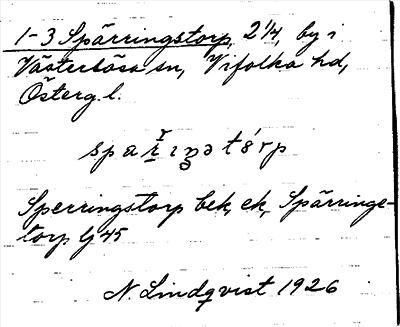 1-3 Spärringstorp, 2 1/4, by i
Västerlösa sn, Vifolka hd,
Österg. l.
Sperringstorp bek, ek, Spärringe-
torp Gj 45
N. Lindqvist 1926